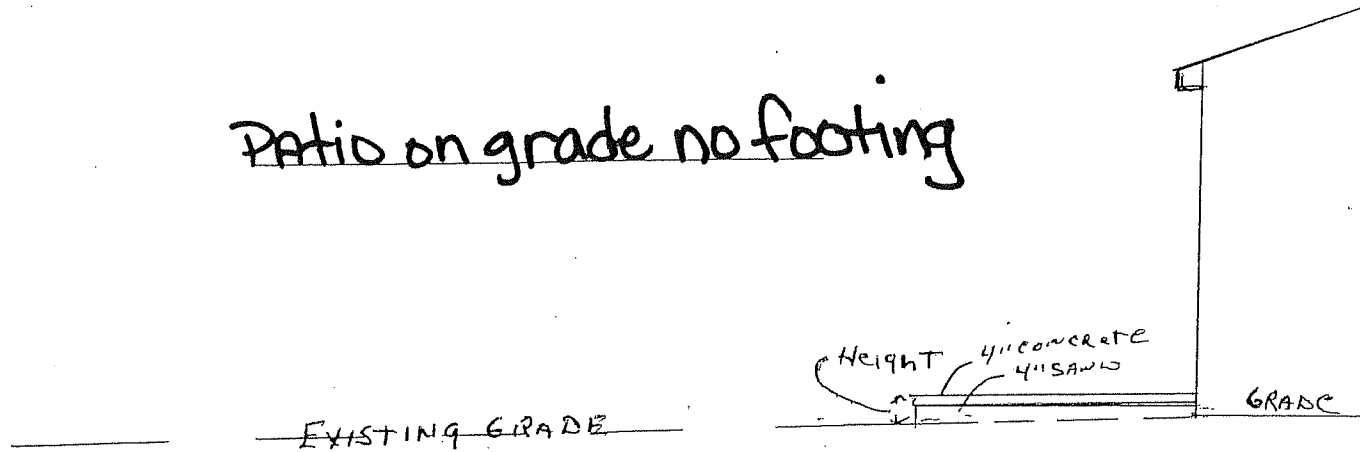 Patio on grade no footing
Height
4" CONCRETE
4" SAND
EXISTING GRADE
GRADE